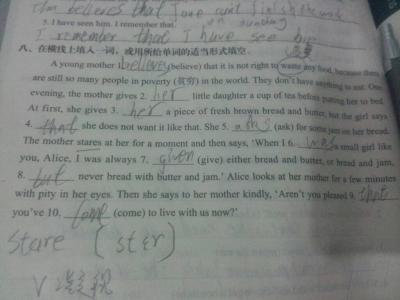 Tom believes that Jane can't finish the work
on Sunday
3. I have seen him. I remember that.
I remember that I have see him
八、在横线上填入一词，或用所给单词的适当形式填空。
A young mother 1. believes (believe) that it is not right to waste any food, because there
are still so many people in poverty (贫穷) in the world. They don't have anything to eat. One
evening, the mother gives 2. her little daughter a cup of tea before putting her to bed.
At first, she gives 3. her a piece of fresh brown bread and butter, but the girl says
4. that she does not want it like that. She 5. asks (ask) for some jam on her bread.
The mother stares at her for a moment and then says, 'When I 6. was a small girl like
you, Alice, I was always 7. given (give) either bread and butter, or bread and jam,
8. but never bread with butter and jam.' Alice looks at her mother for a few minutes
with pity in her eyes. Then she says to her mother kindly, 'Aren't you pleased 9. that
you've 10. come (come) to live with us now?'
stare [stɛr]
V 凝视